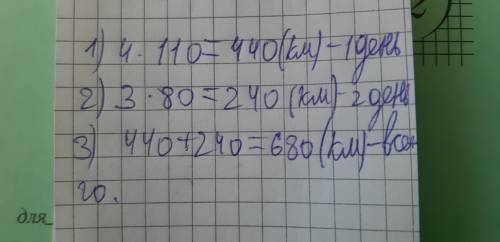 1) 4 · 110 = 440 (км) - 1 день
2) 3 · 80 = 240 (км) - 2 день
3) 440 + 240 = 680 (км) - все
го.
для